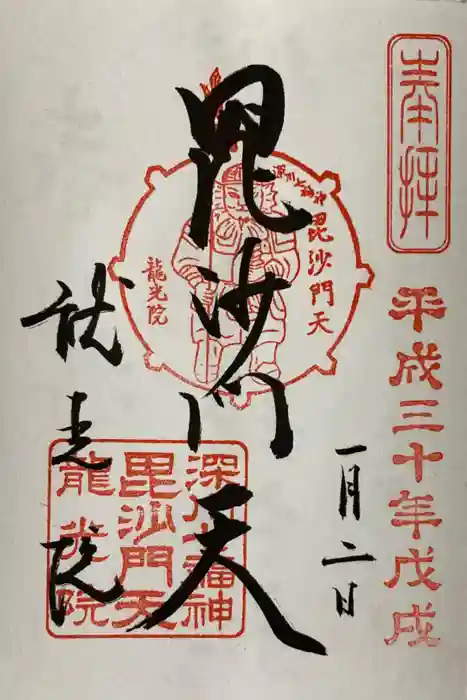 奉拝
平成三十年戊戌
一月二日
毘沙門天
深川七福神
毘沙門天
龍光院
龍光院
深川七福神
毘沙門天
龍光院